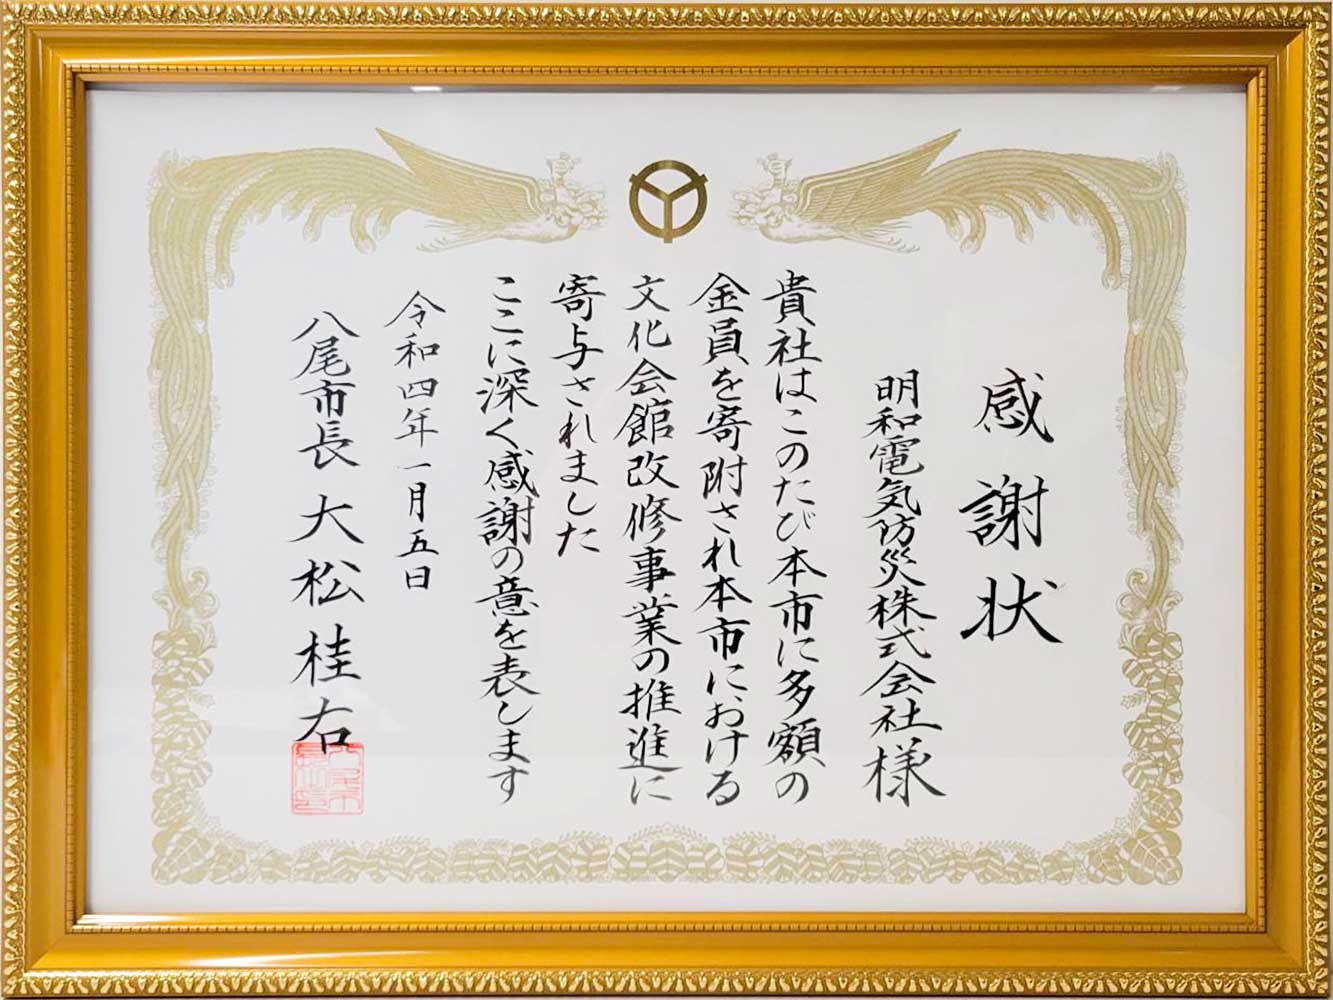 感謝状
明和電気防災株式会社様
貴社はこのたび本市に多額の
金員を寄附され本市における
文化会館改修事業の推進に
寄与されました
ここに深く感謝の意を表します
令和四年一月五日
八尾市長 大松桂右